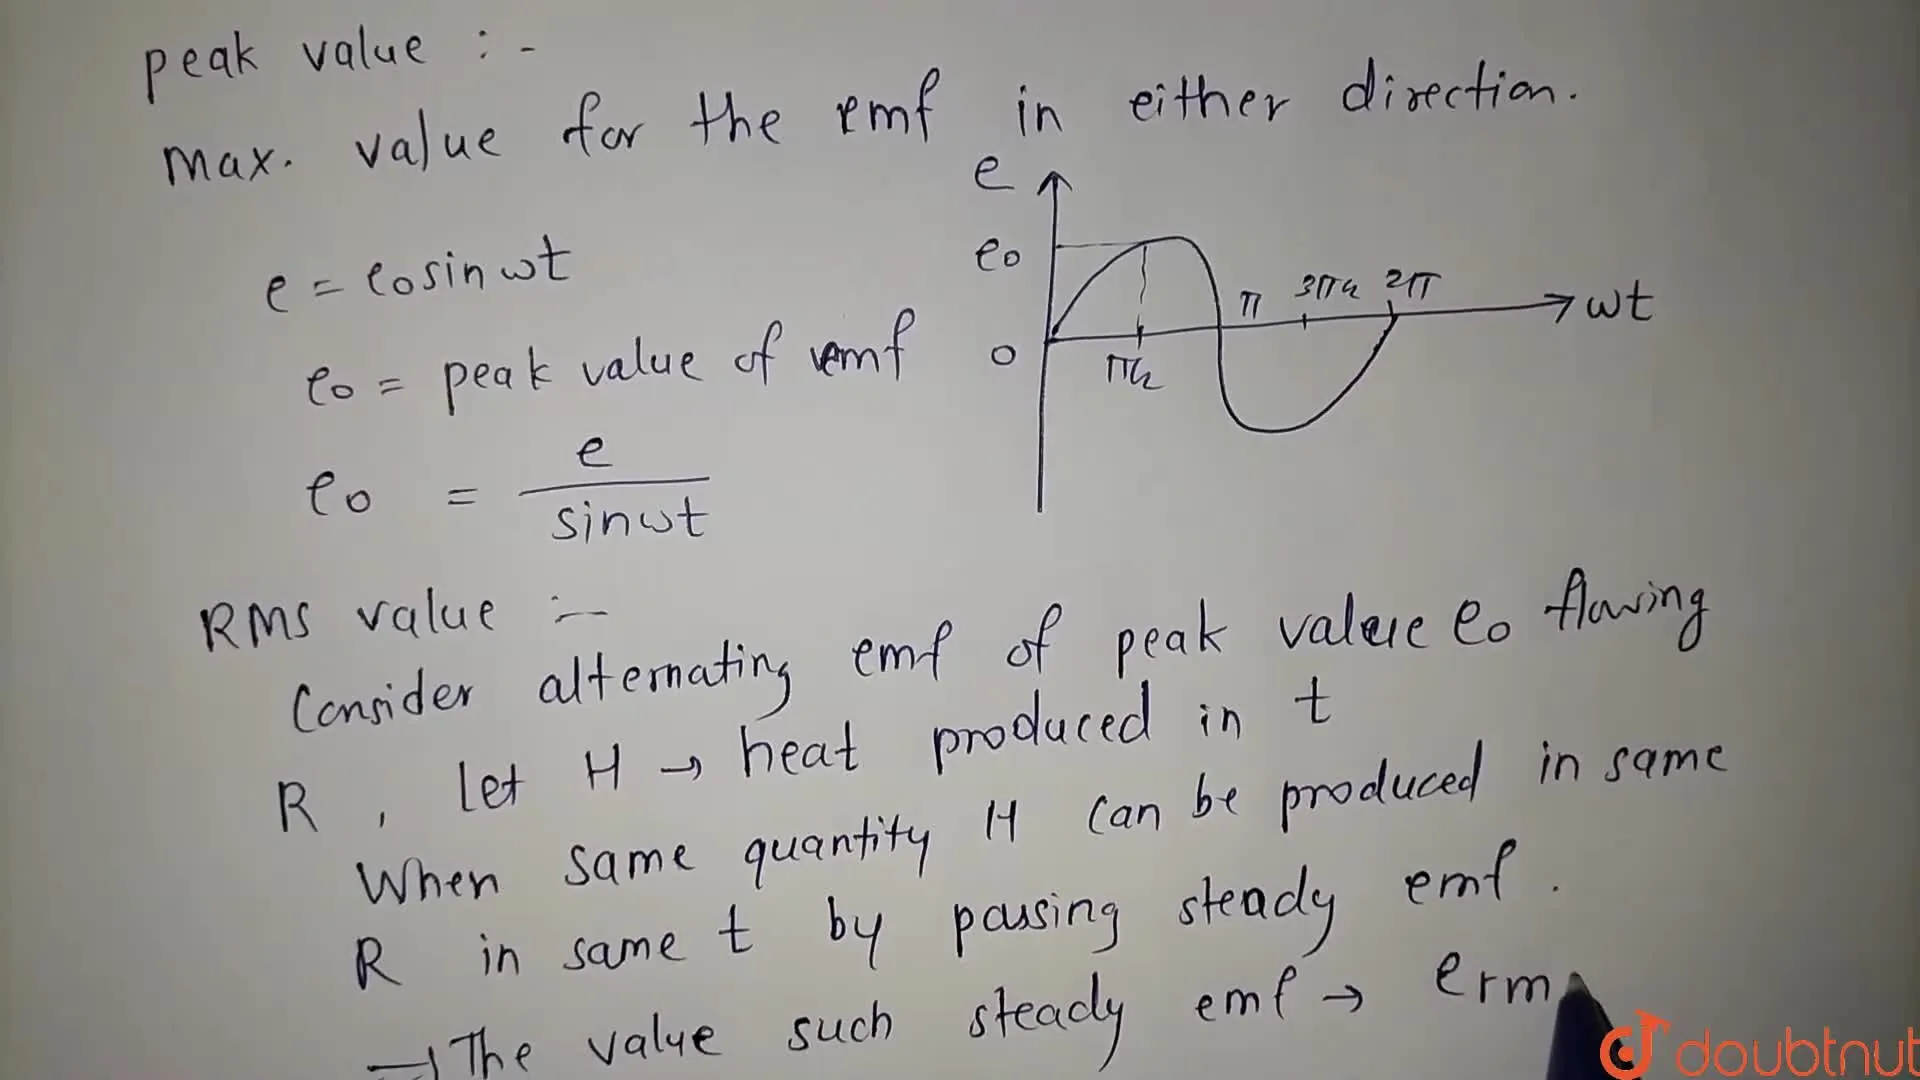 peak value :-
max. value for the emf in either direction.
e
e = e0 sin ωt
e0
π
3π/2
2π
ωt
e0 = peak value of emf
0
π/2
e0 = e / sin ωt
RMS value :-
Consider alternating emf of peak value e0 flowing
R , let H → heat produced in t
When same quantity H can be produced in same
R in same t by passing steady emf.
→ The value such steady emf → erm
doubtnut